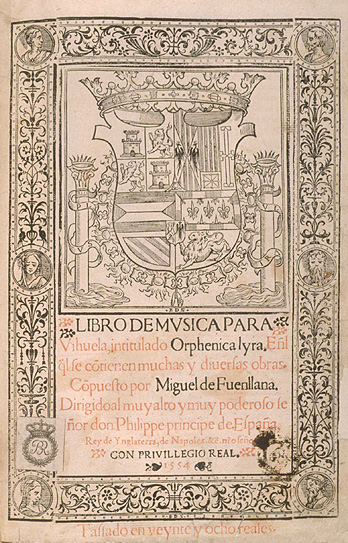 ·P·D·N·
LIBRO DE MVSICA PARA
Vihuela, intitulado Orphenica lyra. Enl
ql se cōtienen muchas y diuersas obras.
Cōpuesto por Miguel de Fuenllana.
Dirigido al muy alto y muy poderoso se
ñor don Philippe principe de España,
Rey de Ynglaterra, de Napoles. &c. nro señor
CON PRIVILLEGIO REAL.
1554
Tassado en veynte y ocho reales.